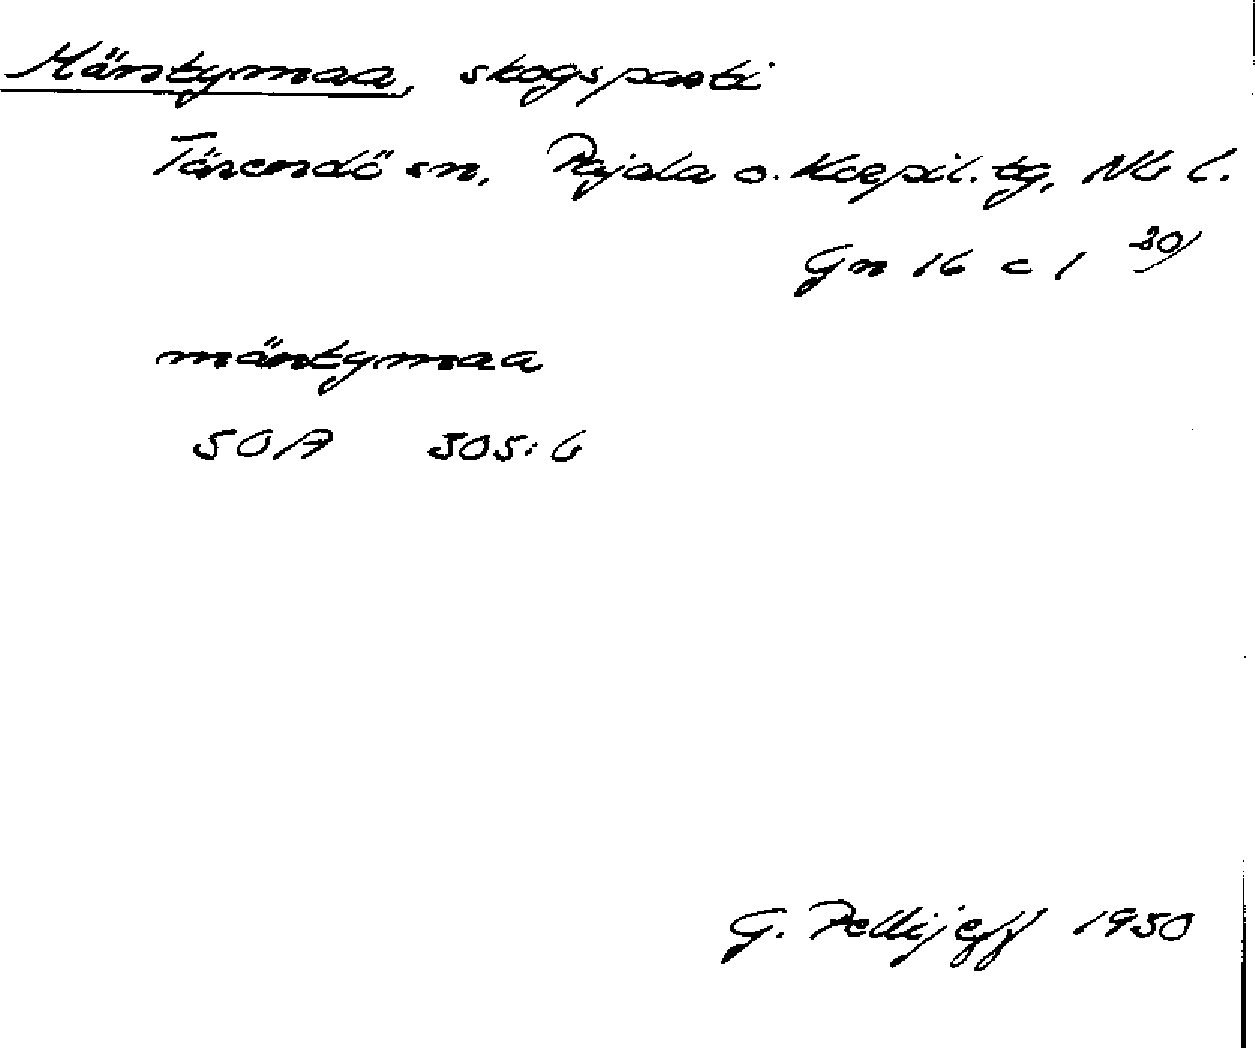 Mäntymaa, skogsparti
Tärendö sn, Pajala o. Korpil. tg, Nb l.
Gn 16 c 1 30/
mäntymaa
SOA 505:6
G. Pellijeff 1950